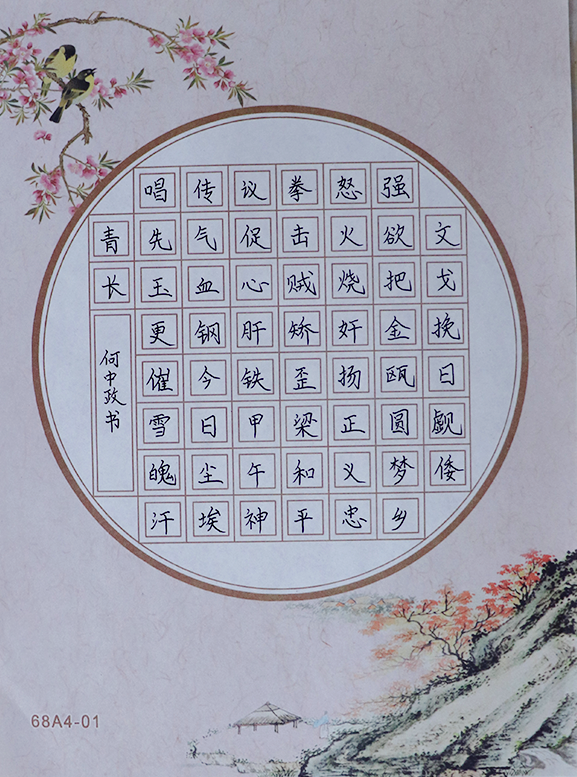 文戈挽日觑倭
强欲把金瓯圆梦乡
怒火烧奸扬正义忠
拳击贼矫歪梁和平
议促心肝铁甲午神
传气血钢今日尘埃
唱先玉更催雪魄汗
青长
何中政书
68A4-01